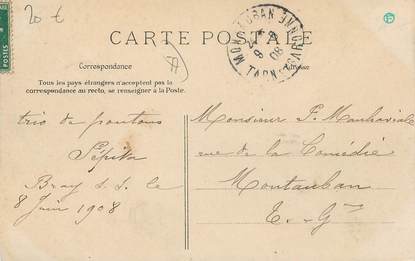 20 €
POSTES
CARTE POSTALE
MONTAUBAN
TARN & GARONNE
8 08
Correspondance
Adresse
Tous les pays étrangers n'acceptent pas la
correspondance au recto, se renseigner à la Poste.
trio de
Pépita
Bray s. S. le
8 Juin 1908
Monsieur P.
rue de la Comédie
Montauban
T.-Gne